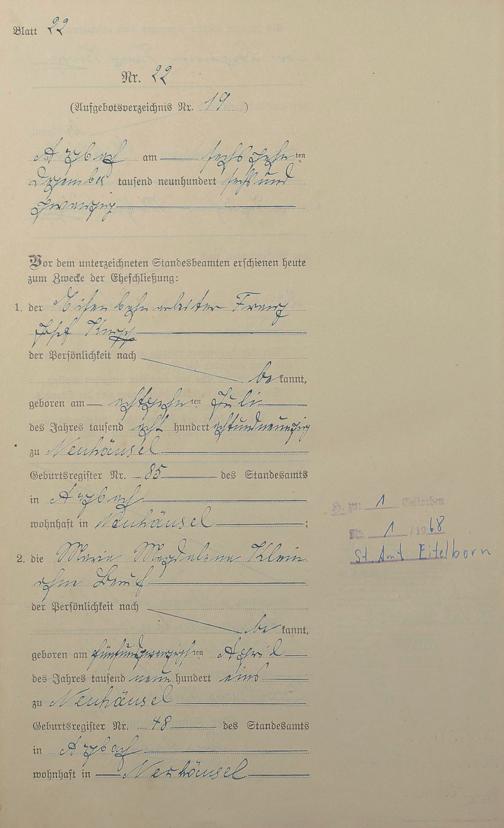 Blatt 22
Nr. 22
(Aufgebotsverzeichnis Nr. 19)
Arzbach am sechszehnten
Dezember tausend neunhundert sechsund
zwanzig
Vor dem unterzeichneten Standesbeamten erschienen heute
zum Zwecke der Eheschließung:
1. der Eisenbahnarbeiter Franz
Josef Knopp
der Persönlichkeit nach
bekannt,
geboren am achtzehnten Juli
des Jahres tausend acht hundert achtundneunzig
zu Neuhäusel
Geburtsregister Nr. 85 des Standesamts
in Arzbach
wohnhaft in Neuhäusel ;
2. die Maria Magdalena Klein
ohne Beruf
der Persönlichkeit nach
bekannt,
geboren am fünfundzwanzigsten April
des Jahres tausend neun hundert eins
zu Neuhäusel
Geburtsregister Nr. 48 des Standesamts
in Arzbach
wohnhaft in Neuhäusel
1
1 /1968
St Amt Eitelborn